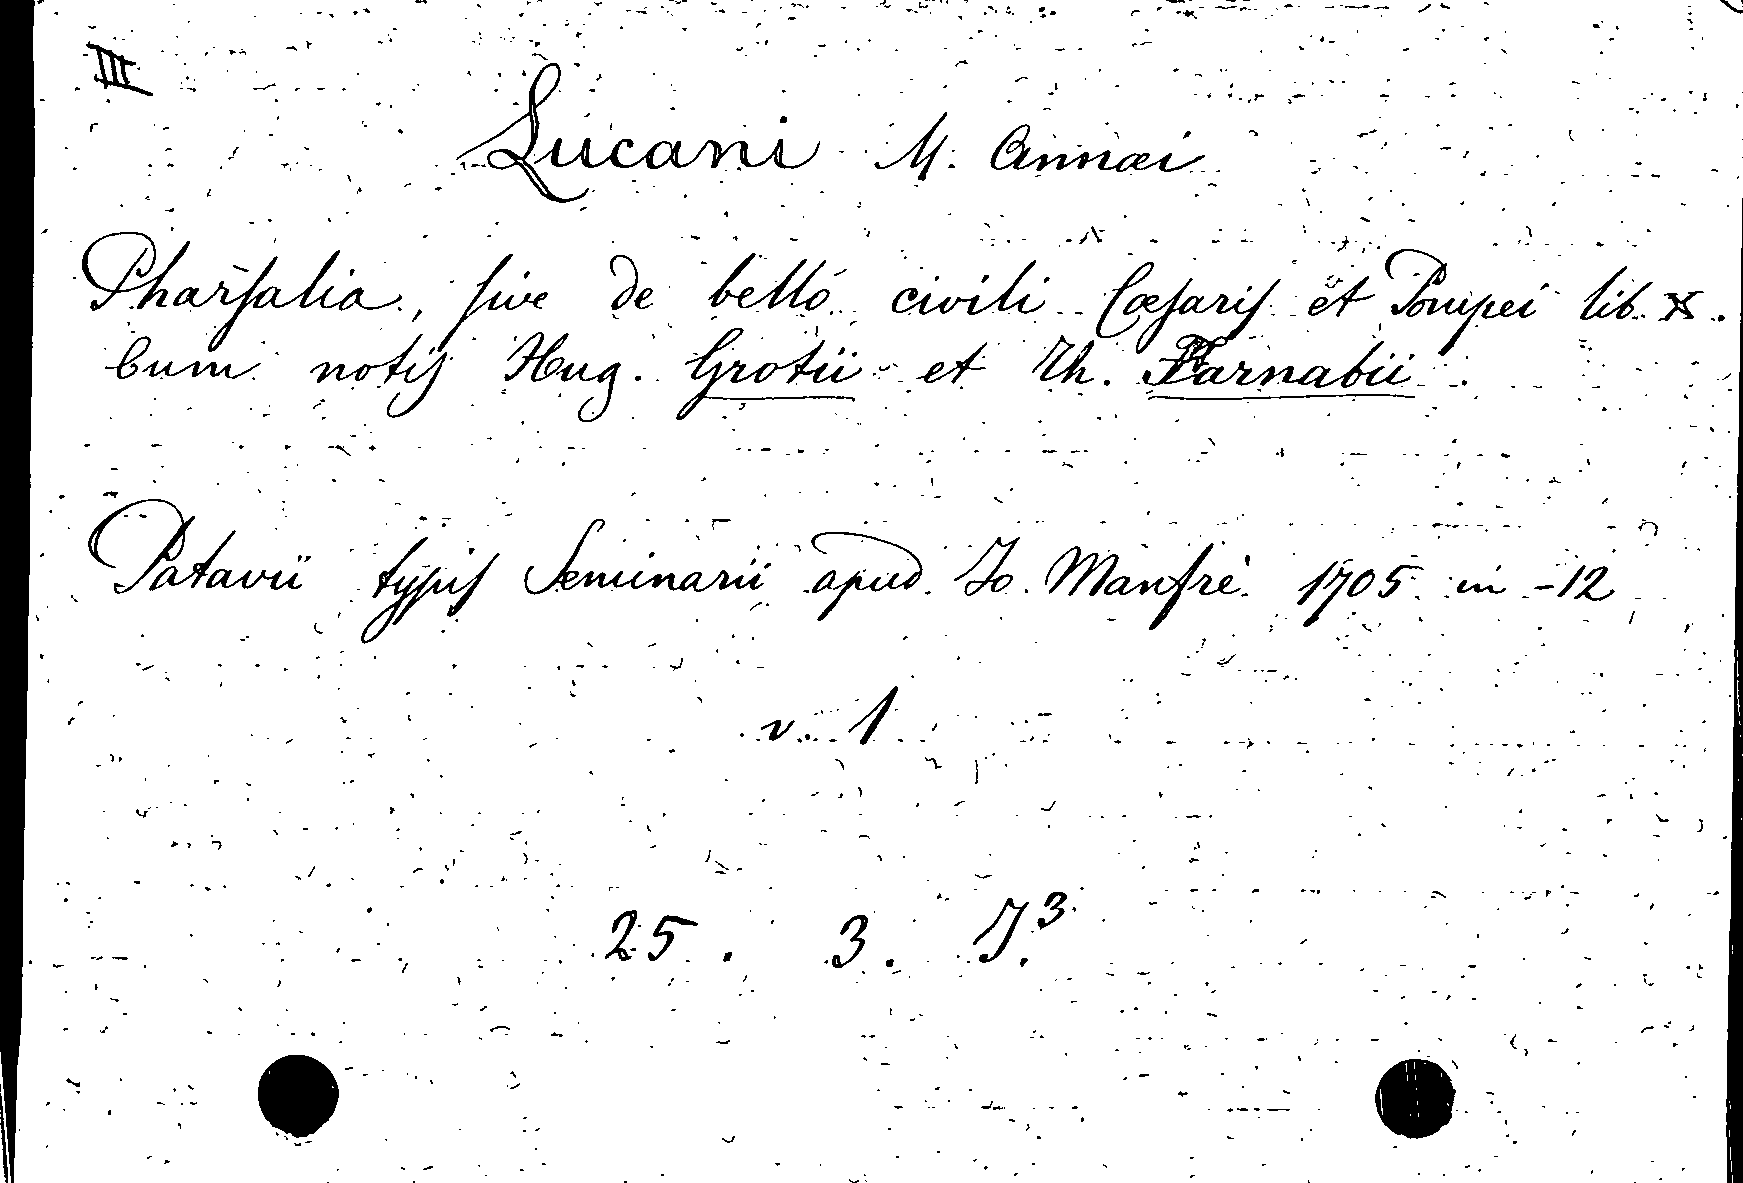 III
Lucani M. Annæi
Pharsalia, sive de bello civili Cæsaris et Pompei lib. X.
Cum notis Hug. Grotii et Th. Farnabii.
Patavii typis Seminarii apud Jo. Manfrè 1705 in-12
v. 1
25. 3. J.³